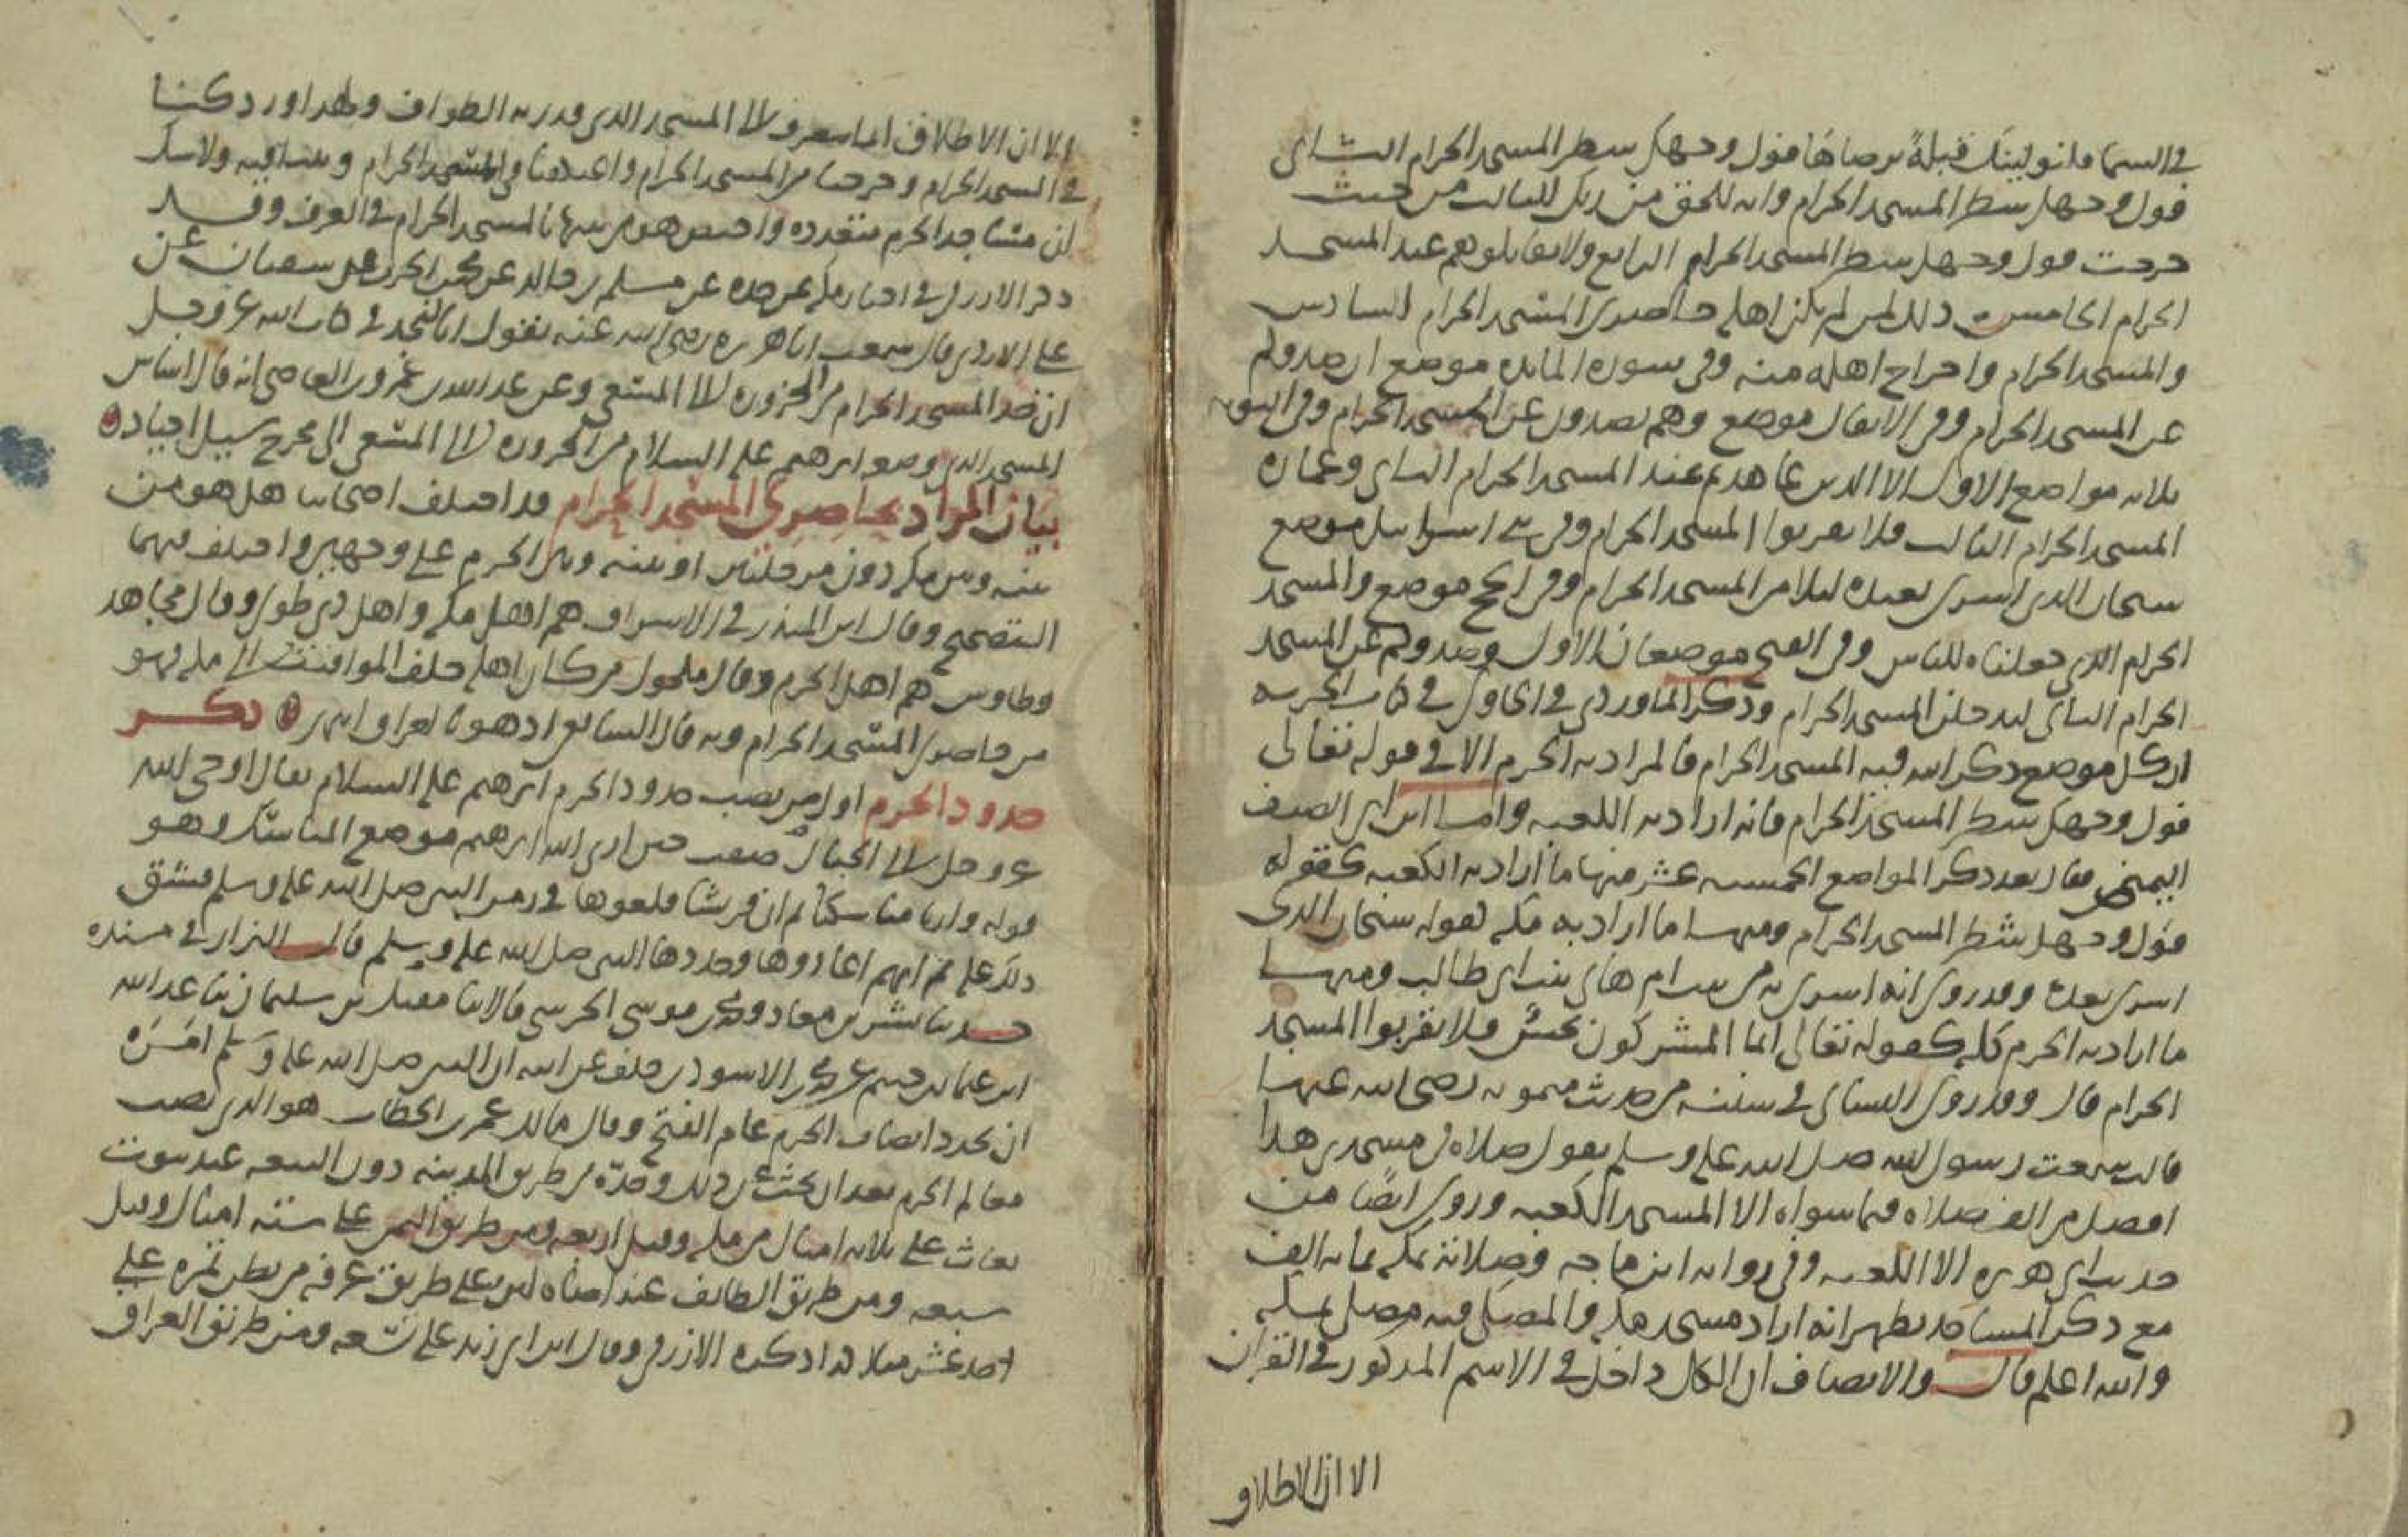 في السما فلنولينك قبلة ترضاها فول وجهك شطر المسجد الحرام الثاني
فول وجهك شطر المسجد الحرام وانه للحق من ربك الثالث من حيث
خرجت فول وجهك شطر المسجد الحرام الرابع ولا تقاتلوهم عند المسجد
الحرام الخامس ذلك لمن لم يكن اهله حاضري المسجد الحرام السادس
والمسجد الحرام واخراج اهله منه وفي سورة المايدة موضع ان صدوكم
عن المسجد الحرام وفي الانفال موضع وهم يصدون عن المسجد الحرام وفي التوبة
ثلاثة مواضع الاول الا الذين عاهدتم عند المسجد الحرام الثاني وعمارة
المسجد الحرام الثالث فلا يقربوا المسجد الحرام وفي بني اسرايل موضع
سبحان الذي اسرى بعبده ليلا من المسجد الحرام وفي الحج موضع والمسجد
الحرام الذي جعلناه للناس وفي الفتح موضعان الاول وصدوكم عن المسجد
الحرام الثاني لتدخلن المسجد الحرام وذكر الماوردي في الحاوي في كتاب الجزية
ان كل موضع ذكر الله فيه المسجد الحرام فالمراد به الحرم الا في قوله تعالى
فول وجهك شطر المسجد الحرام فانه اراد به الكعبة واما ابن ابي الصيف
اليمني فقال بعد ذكر المواضع الخمسة عشر منها ما اراد به الكعبة كقوله
فول وجهك شطر المسجد الحرام ومنها ما اراد به مكة كقوله سبحان الذي
اسرى بعبده وقد روي انه اسري به من بيت ام هاني بنت ابي طالب ومنها
ما اراد به الحرم كله كقوله تعالى انما المشركون نجس فلا يقربوا المسجد
الحرام قال وقد روى النساي في سننه من حديث ميمونة رضي الله عنها
قالت سمعت رسول الله صلى الله عليه وسلم يقول صلاة في مسجدي هذا
افضل من الف صلاة فيما سواه الا المسجد الكعبة وروى ايضا من
حديث ابي هريرة الا الكعبة وفي رواية ابن ماجه وصلاته بمكة بماية الف
مع ذكر المساجد يظهر انه اراد مسجد مكة والمصلى فيه مصل بمكة
والله اعلم قال والانصاف ان الكل داخل في الاسم المذكور في القران
الا ان الاطلاق
الا ان الاطلاق انما ينصرف الى المسجد الذي قدر به الطواف ولهذا ورد كنا
في المسجد الحرام وخرجنا من المسجد الحرام واعتكفنا في المسجد الحرام وبتنا فيه ولا شك
ان مساجد الحرم متعددة واختص هو من بينها بالمسجد الحرام في العرف وقد
ذكر الازرقي في اخبار مكة عن جده عن مسلم بن خالد عن محمد بن الحرث عن سفيان عن
علي الازدي قال سمعت ابا هريرة رضي الله عنه يقول انا لنجد في كتاب الله عز وجل
ان حد المسجد الحرام من الحزورة الى المسعى وعن عبد الله بن عمرو بن العاصي انه قال اساس
المسجد الذي وضعه ابرهيم عليه السلام من الحزورة الى المسعى الى مخرج سيل اجياد
بيان المراد بحاضري المسجد الحرام وقد اختلف اصحابنا هل هو من
بينه وبين مكة دون مرحلتين او بينه وبين الحرم على وجهين واختلف فيهما
التصحيح وقال ابن المنذر في الاشراف هم اهل مكة واهل ذي طوى وقال مجاهد
وطاوس هم اهل الحرم وقال مكحول من كان اهله خلف المواقيت الى مكة فهو
من حاضري المسجد الحرام وبه قال الشافعي اذ هو بالعراق ذكر
حدود الحرم اول من نصب حدود الحرم ابرهيم عليه السلام يقال اوحى الله
عز وجل الى الجبال حين ارى الله ابرهيم موضع المناسك وهو
قوله وارنا مناسكنا ثم ان قريشا قلعوها في زمن النبي صلى الله عليه وسلم فشق
ذلك عليه ثم انهم اعادوها وحددها النبي صلى الله عليه وسلم قال البزار في مسنده
حدثنا بشر بن معاذ ومحمد بن موسى الحرشي قالا ثنا فضيل بن سليمان ثنا عبد الله
ابن عثمان بن خثيم عن محمد بن الاسود بن خلف عن ابيه ان النبي صلى الله عليه وسلم امره
ان يجدد انصاب الحرم عام الفتح وقال مالك عمر بن الخطاب هو الذي نصب
معالم الحرم بعد ان بحث عن ذلك وحده من طريق المدينة دون التنعيم عند بيوت
نفار على ثلاثة اميال من مكة وقيل اربعة ومن طريق اليمن على ستة اميال وقيل
سبعة ومن طريق الطايف عند اضاة لبن على طريق عرفة من بطن نمرة على
احد عشر ميلا هكذا ذكره الازرقي وقال ابن ابي زيد على تسعة ومن طريق العراق